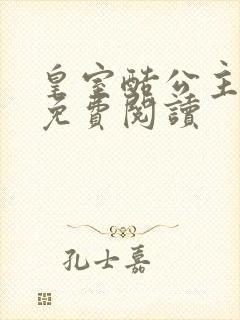 皇室酷公主
免費閱讀
孔士嘉